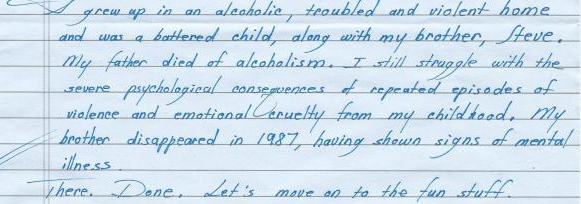 I grew up in an alcoholic, troubled and violent home
and was a battered child, along with my brother, Steve.
My father died of alcoholism. I still struggle with the
severe psychological consequences of repeated episodes of
violence and emotional cruelty from my childhood. My
brother disappeared in 1987, having shown signs of mental
illness.
There. Done. Let's move on to the fun stuff.